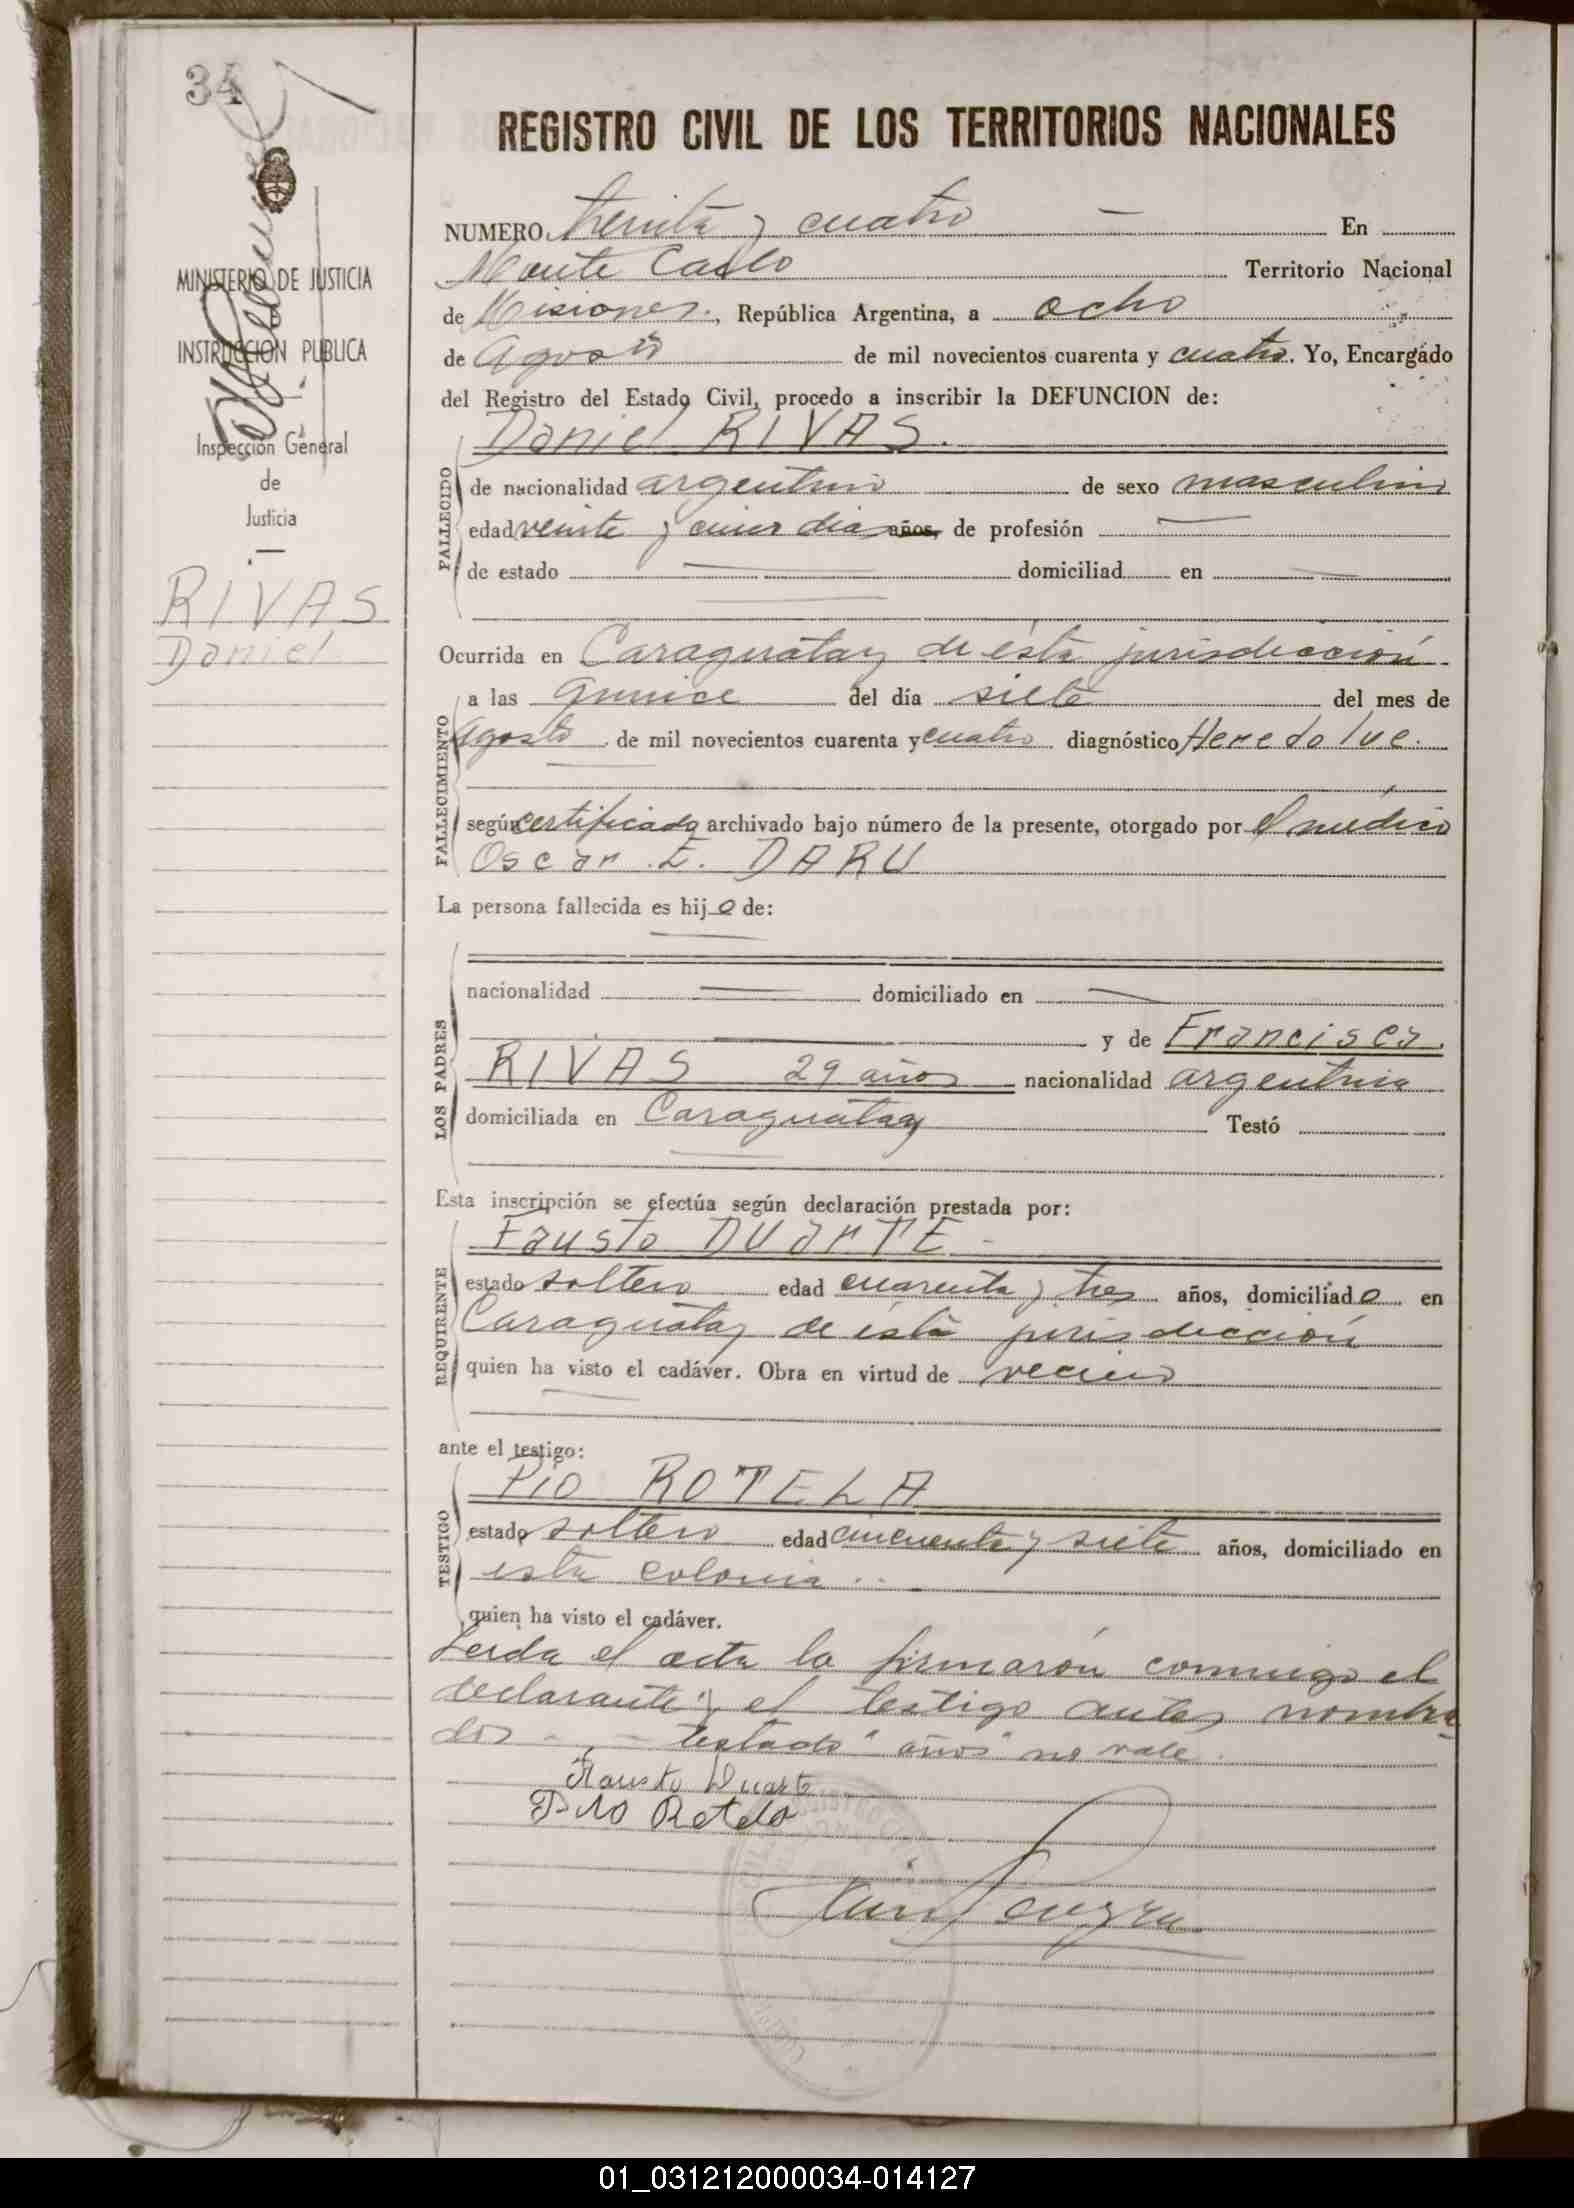 34
REGISTRO CIVIL DE LOS TERRITORIOS NACIONALES
MINISTERIO DE JUSTICIA
INSTRUCCION PUBLICA
Inspección General
de
Justicia
RIVAS
Daniel
NUMERO treinta y cuatro — En
Monte Carlo Territorio Nacional
de Misiones., República Argentina, a ocho
de Agosto de mil novecientos cuarenta y cuatro. Yo, Encargado
del Registro del Estado Civil, procedo a inscribir la DEFUNCION de:
Daniel RIVAS.
FALLECIDO
de nacionalidad argentino de sexo masculino
edad veinte y cinco dias años, de profesión —
de estado — domiciliad en —
Ocurrida en Caraguatay de ésta jurisdicción
FALLECIMIENTO
a las quince del día siete del mes de
Agosto de mil novecientos cuarenta y cuatro diagnóstico Heredo lue.
según certificado archivado bajo número de la presente, otorgado por el médico
Oscar E. DARU
La persona fallecida es hijo de:
LOS PADRES
nacionalidad — domiciliado en —
— y de Francisca
RIVAS 29 años nacionalidad argentina
domiciliada en Caraguatay Testó
Esta inscripción se efectúa según declaración prestada por:
Fausto DUarTE -
REQUIRENTE
estado soltero edad cuarenta y tres años, domiciliado en
Caraguatay de ésta jurisdicción
quien ha visto el cadáver. Obra en virtud de vecino
ante el testigo:
Pio ROTELA
TESTIGO
estado soltero edad cincuenta y siete años, domiciliado en
esta colonia ..
quien ha visto el cadáver.
Leida el acta la firmarón conmigo el
declarante y el testigo antes nombra-
dos - , - testado "años" no vale.
Fausto Duarte
Pio Rotela
01_031212000034-014127